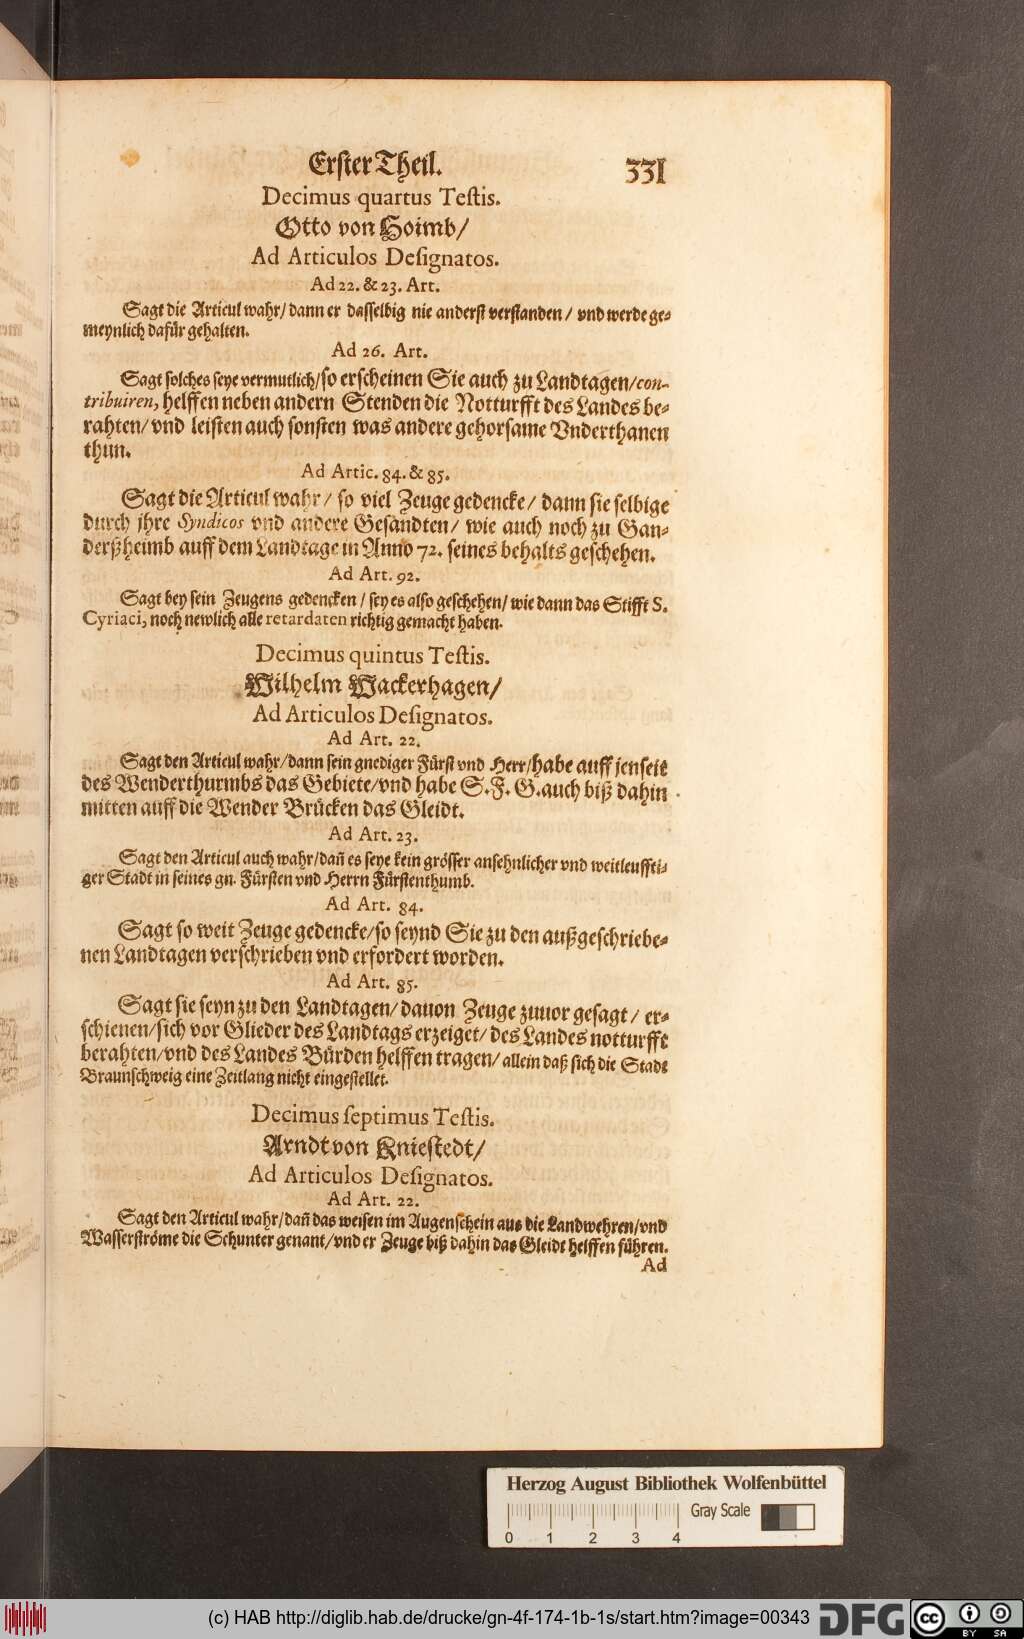 Erster Theil. 331
Decimus quartus Testis.
Otto von Hoimb/
Ad Articulos Designatos.
Ad 22. & 23. Art.
Sagt die Articul wahr/ dann er dasselbig nie anderst verstanden / vnd werde ge-
meynlich dafür gehalten.
Ad 26. Art.
Sagt solches seye vermutlich/so erscheinen Sie auch zu Landtagen/con-
tribuiren, helffen neben andern Stenden die Notturfft des Landes be-
rahten/ vnd leisten auch sonsten was andere gehorsame Vnderthanen
thun.
Ad Artic. 84. & 85.
Sagt die Articul wahr/ so viel Zeuge gedencke/ dann sie selbige
durch jhre Syndicos vnd andere Gesandten/ wie auch noch zu Gan-
derßheimb auff dem Landtage in Anno 72. seines behalts geschehen.
Ad Art. 92.
Sagt bey sein Zeugens gedencken / sey es also geschehen/ wie dann das Stifft S.
Cyriaci, noch newlich alle retardaten richtig gemacht haben.
Decimus quintus Testis.
Wilhelm Wackerhagen/
Ad Articulos Designatos.
Ad Art. 22.
Sagt den Articul wahr/dann sein gnediger Fürst vnd Herr/habe auff jenseit
des Wenderthurmbs das Gebiete/vnd habe S. F. G. auch biß dahin
mitten auff die Wender Brücken das Gleidt.
Ad Art. 23.
Sagt den Articul auch wahr/dañ es seye kein grösser ansehnlicher vnd weitleuffti-
ger Stadt in seines gn. Fürsten vnd Herrn Fürstenthumb.
Ad Art. 84.
Sagt so weit Zeuge gedencke/so seynd Sie zu den außgeschriebe-
nen Landtagen verschrieben vnd erfordert worden.
Ad Art. 85.
Sagt sie seyn zu den Landtagen/ dauon Zeuge zuuor gesagt / er-
schienen/sich vor Glieder des Landtags erzeiget/ des Landes notturfft
berahten/vnd des Landes Bürden helffen tragen/ allein daß sich die Stadt
Braunschweig eine Zeitlang nicht eingestellet.
Decimus septimus Testis.
Arndt von Kniestedt/
Ad Articulos Designatos.
Ad Art. 22.
Sagt den Articul wahr/dañ das weisen im Augenschein aus die Landwehren/vnd
Wasserströme die Schunter genant/vnd er Zeuge biß dahin das Gleidt helffen führen.
Ad
Herzog August Bibliothek Wolfenbüttel
Gray Scale
0 1 2 3 4
(c) HAB http://diglib.hab.de/drucke/gn-4f-174-1b-1s/start.htm?image=00343
DFG
cc BY SA